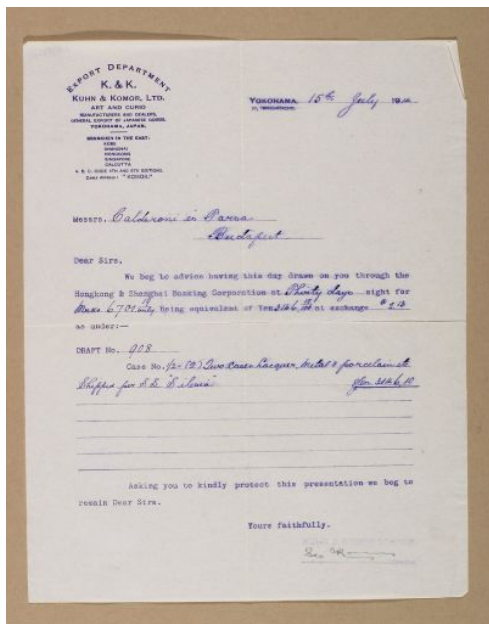 EXPORT DEPARTMENT
K. & K.
KUHN & KOMOR, LTD.
ART AND CURIO
MANUFACTURERS AND DEALERS,
GENERAL EXPORT OF JAPANESE GOODS.
YOKOHAMA, JAPAN.
BRANCHES IN THE EAST:
KOBE
SHANGHAI
HONGKONG
SINGAPORE
CALCUTTA
A. B. C. CODE 4TH AND 5TH EDITIONS.
YOKOHAMA, 15th July
Messrs. Calderoni
Budapest
Dear Sirs,
We beg to advice having this day drawn on you through the
Hongkong & Shanghai Banking Corporation at Thirty days sight for
being equivalent of Yen at exchange
as under:—
DRAFT No. 908
Case No. 1/2- (2) Two cases Lacquer, Metal & porcelain
Shipped per S.S. "Silesia"
Asking you to kindly protect this presentation we beg to
remain Dear Sirs.
Yours faithfully.